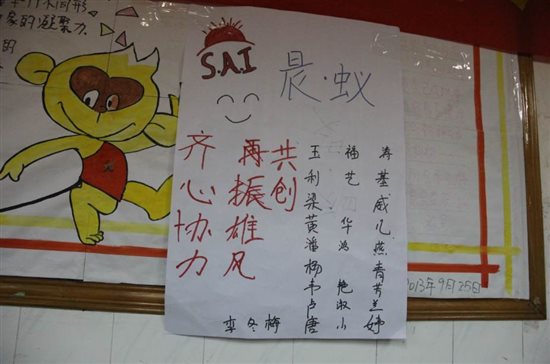 不同形
家的凝聚力
的
S.A.I
晨·蚁
齐心协力
再振雄风
共创
玉福寿
利艺基
梁威
黄华儿
潘鸿燕
杨青
韦艳芳
卢淑兰
唐小婷
李冬梅
2013年9月25日